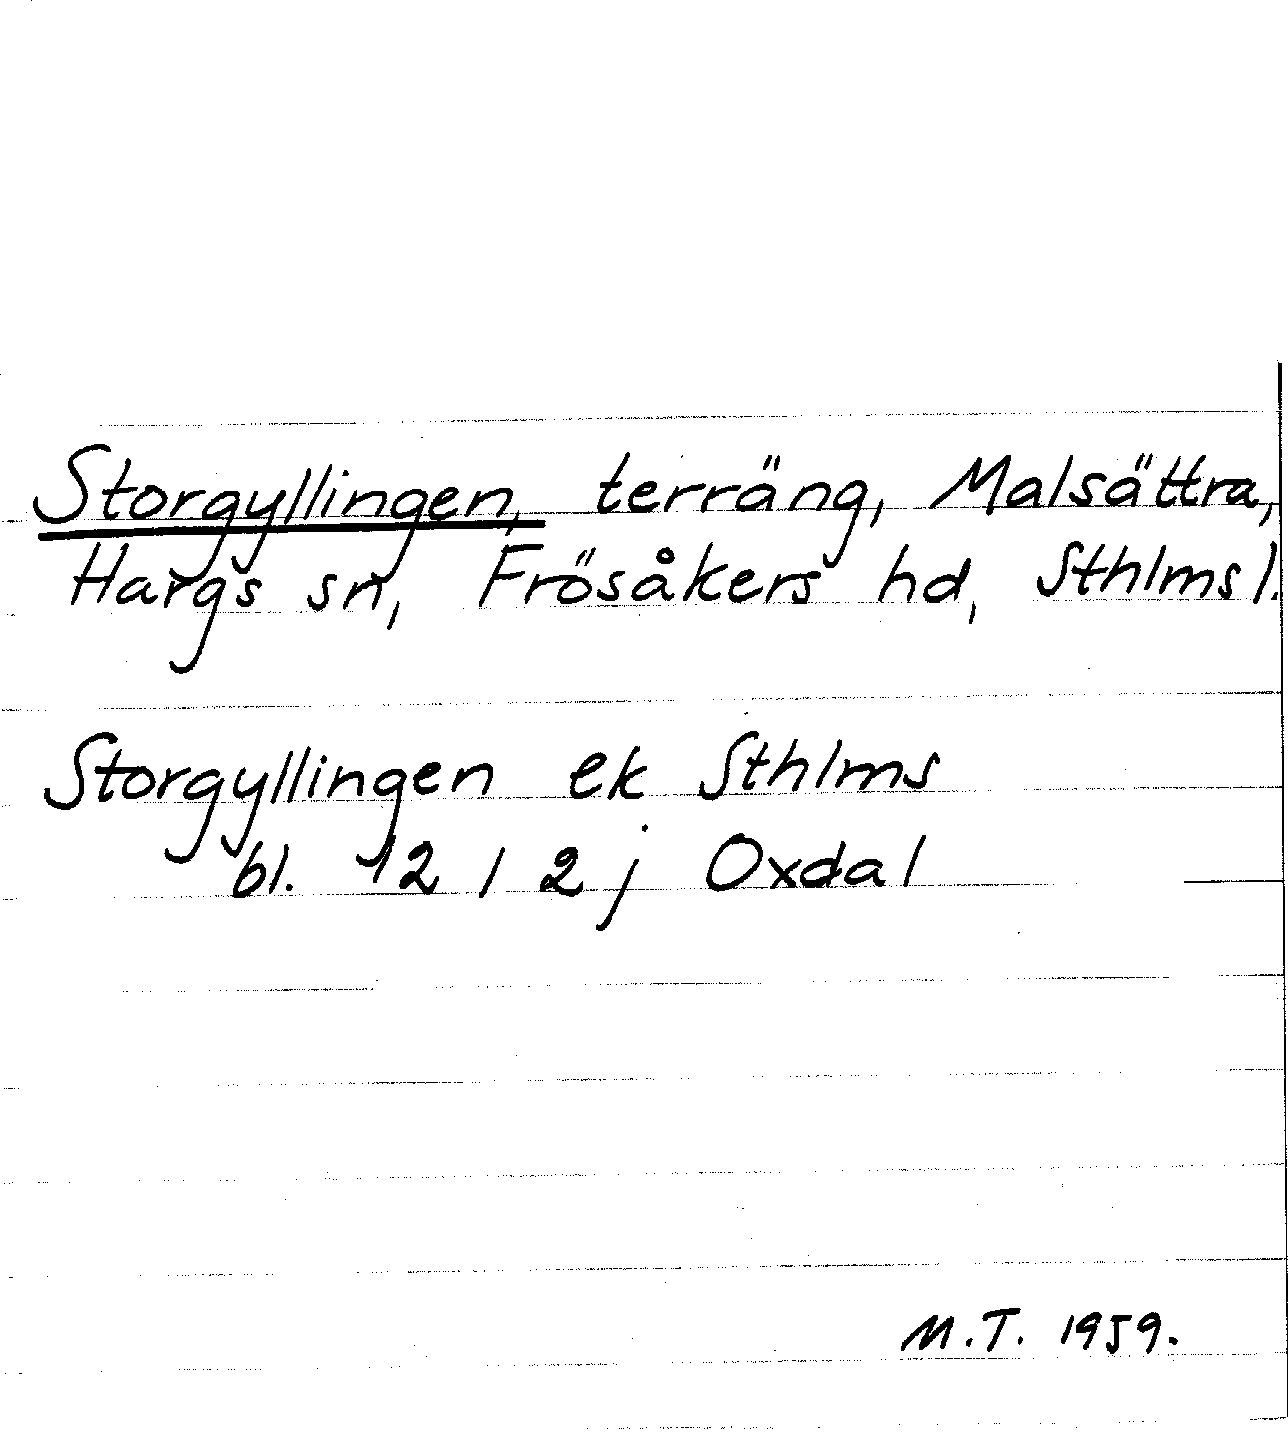 Storgyllingen, terräng, Malsättra,
Hargs sn, Frösåkers hd, Sthlms l.
Storgyllingen ek Sthlms
bl. 12 I 2 j Oxdal
M.T. 1959.